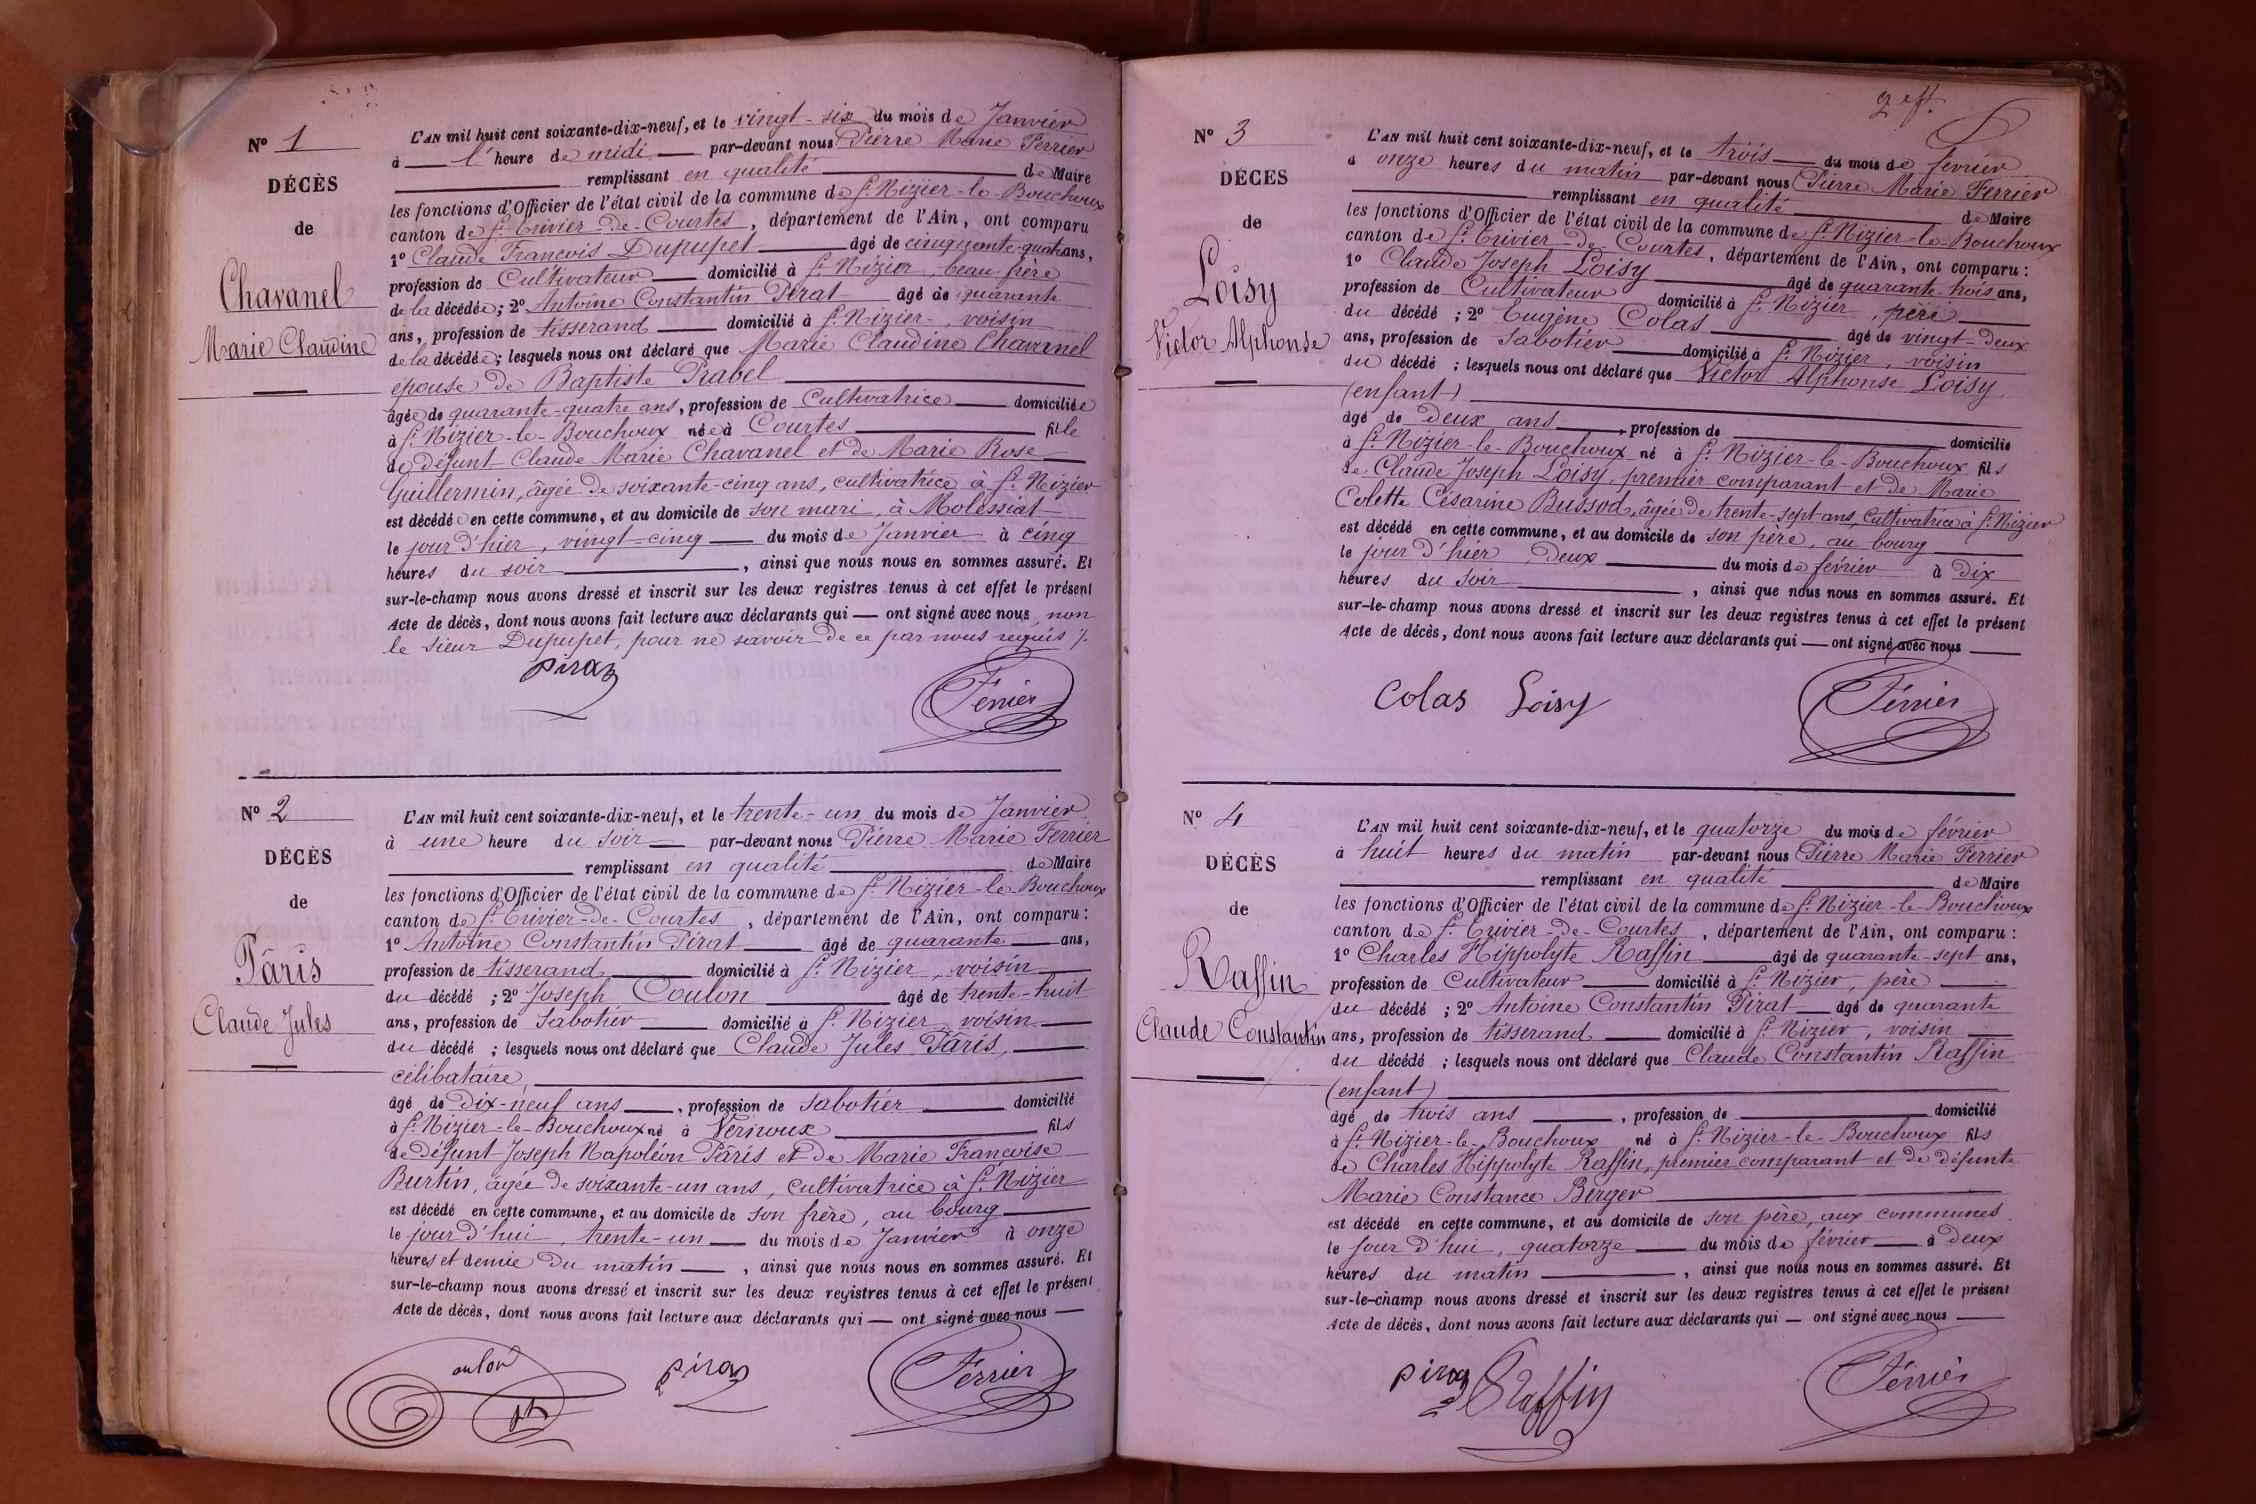 Nº 1
DÉCÈS
de
Chavanel
Marie Claudine
L'AN mil huit cent soixante-dix-neuf, et le vingt-six du mois de Janvier
à l'heure de midi par-devant nous Pierre Marie Ferrier
remplissant en qualité de Maire
les fonctions d'Officier de l'état civil de la commune de St. Nizier-le-Bouchoux
canton de St. Trivier-de-Courtes, département de l'Ain, ont comparu
1º Claude François Dupupet âgé de cinquante-quatre ans,
profession de Cultivateur domicilié à St. Nizier, beau-frère
de la décédée; 2º Antoine Constantin Pirat âgé de quarante
ans, profession de tisserand domicilié à St. Nizier, voisin
de la décédée; lesquels nous ont déclaré que Marie Claudine Chavanel
épouse de Baptiste Prabel
âgée de quarante-quatre ans, profession de Cultivatrice domiciliée
à St. Nizier-le-Bouchoux née à Courtes fille
de défunt Claude Marie Chavanel et de Marie Rose
Guillermin, âgée de soixante-cinq ans, cultivatrice à St. Nizier
est décédée en cette commune, et au domicile de son mari, à Molessiat
le jour d'hier, vingt-cinq du mois de Janvier à cinq
heures du soir, ainsi que nous nous en sommes assuré. Et
sur-le-champ nous avons dressé et inscrit sur les deux registres tenus à cet effet le présent
Acte de décès, dont nous avons fait lecture aux déclarants qui — ont signé avec nous, non
le sieur Dupupet, pour ne savoir de ce par nous requis /.
Piraz Ferrier
Nº 2
DÉCÈS
de
Pâris
Claude Jules
L'AN mil huit cent soixante-dix-neuf, et le trente-un du mois de Janvier
à une heure du soir par-devant nous Pierre Marie Ferrier
remplissant en qualité de Maire
les fonctions d'Officier de l'état civil de la commune de St. Nizier-le-Bouchoux
canton de St. Trivier-de-Courtes, département de l'Ain, ont comparu :
1º Antoine Constantin Pirat âgé de quarante ans,
profession de tisserand domicilié à St. Nizier, voisin
du décédé ; 2º Joseph Coulon âgé de trente-huit
ans, profession de Sabotier domicilié à St. Nizier voisin
du décédé ; lesquels nous ont déclaré que Claude Jules Pâris,
célibataire,
âgé de dix-neuf ans, profession de Sabotier domicilié
à St. Nizier-le-Bouchoux né à Vernoux fils
de défunt Joseph Napoléon Pâris et de Marie Françoise
Burtin, âgée de soixante-un ans, cultivatrice à St. Nizier
est décédé en cette commune, et au domicile de son frère, au bourg
le jour d'hui, trente-un du mois de Janvier à onze
heures et demie du matin, ainsi que nous nous en sommes assuré. Et
sur-le-champ nous avons dressé et inscrit sur les deux registres tenus à cet effet le présent
Acte de décès, dont nous avons fait lecture aux déclarants qui — ont signé avec nous
Coulon Piraz Ferrier
Nº 3
DÉCÈS
de
Loisy
Victor Alphonse
L'AN mil huit cent soixante-dix-neuf, et le trois du mois de février
à onze heures du matin par-devant nous Pierre Marie Ferrier
remplissant en qualité de Maire
les fonctions d'Officier de l'état civil de la commune de St. Nizier-le-Bouchoux
canton de St. Trivier-de-Courtes, département de l'Ain, ont comparu :
1º Claude Joseph Loisy âgé de quarante-trois ans,
profession de Cultivateur domicilié à St. Nizier, père
du décédé ; 2º Eugène Colas âgé de vingt-deux
ans, profession de Sabotier domicilié à St. Nizier, voisin
du décédé ; lesquels nous ont déclaré que Victor Alphonse Loisy
(enfant)
âgé de deux ans, profession de domicilié
à St. Nizier-le-Bouchoux né à St. Nizier-le-Bouchoux fils
de Claude Joseph Loisy, premier comparant et de Marie
Colette Césarine Bussod, âgée de trente-sept ans, Cultivatrice à St. Nizier
est décédé en cette commune, et au domicile de son père, au bourg
le jour d'hier, deux du mois de février à dix
heures du soir, ainsi que nous nous en sommes assuré. Et
sur-le-champ nous avons dressé et inscrit sur les deux registres tenus à cet effet le présent
Acte de décès, dont nous avons fait lecture aux déclarants qui — ont signé avec nous
Colas Loisy Ferrier
Nº 4
DÉCÈS
de
Raffin
Claude Constantin
L'AN mil huit cent soixante-dix-neuf, et le quatorze du mois de février
à huit heures du matin par-devant nous Pierre Marie Ferrier
remplissant en qualité de Maire
les fonctions d'Officier de l'état civil de la commune de St. Nizier-le-Bouchoux
canton de St. Trivier-de-Courtes, département de l'Ain, ont comparu :
1º Charles Hippolyte Raffin âgé de quarante-sept ans,
profession de Cultivateur domicilié à St. Nizier, père
du décédé ; 2º Antoine Constantin Pirat âgé de quarante
ans, profession de tisserand domicilié à St. Nizier, voisin
du décédé ; lesquels nous ont déclaré que Claude Constantin Raffin
(enfant)
âgé de trois ans, profession de domicilié
à St. Nizier-le-Bouchoux né à St. Nizier-le-Bouchoux fils
de Charles Hippolyte Raffin, premier comparant et de défunte
Marie Constance Berger
est décédé en cette commune, et au domicile de son père, aux communes
le jour d'hui, quatorze du mois de février à deux
heures du matin, ainsi que nous nous en sommes assuré. Et
sur-le-champ nous avons dressé et inscrit sur les deux registres tenus à cet effet le présent
Acte de décès, dont nous avons fait lecture aux déclarants qui — ont signé avec nous
Piraz Raffin Ferrier